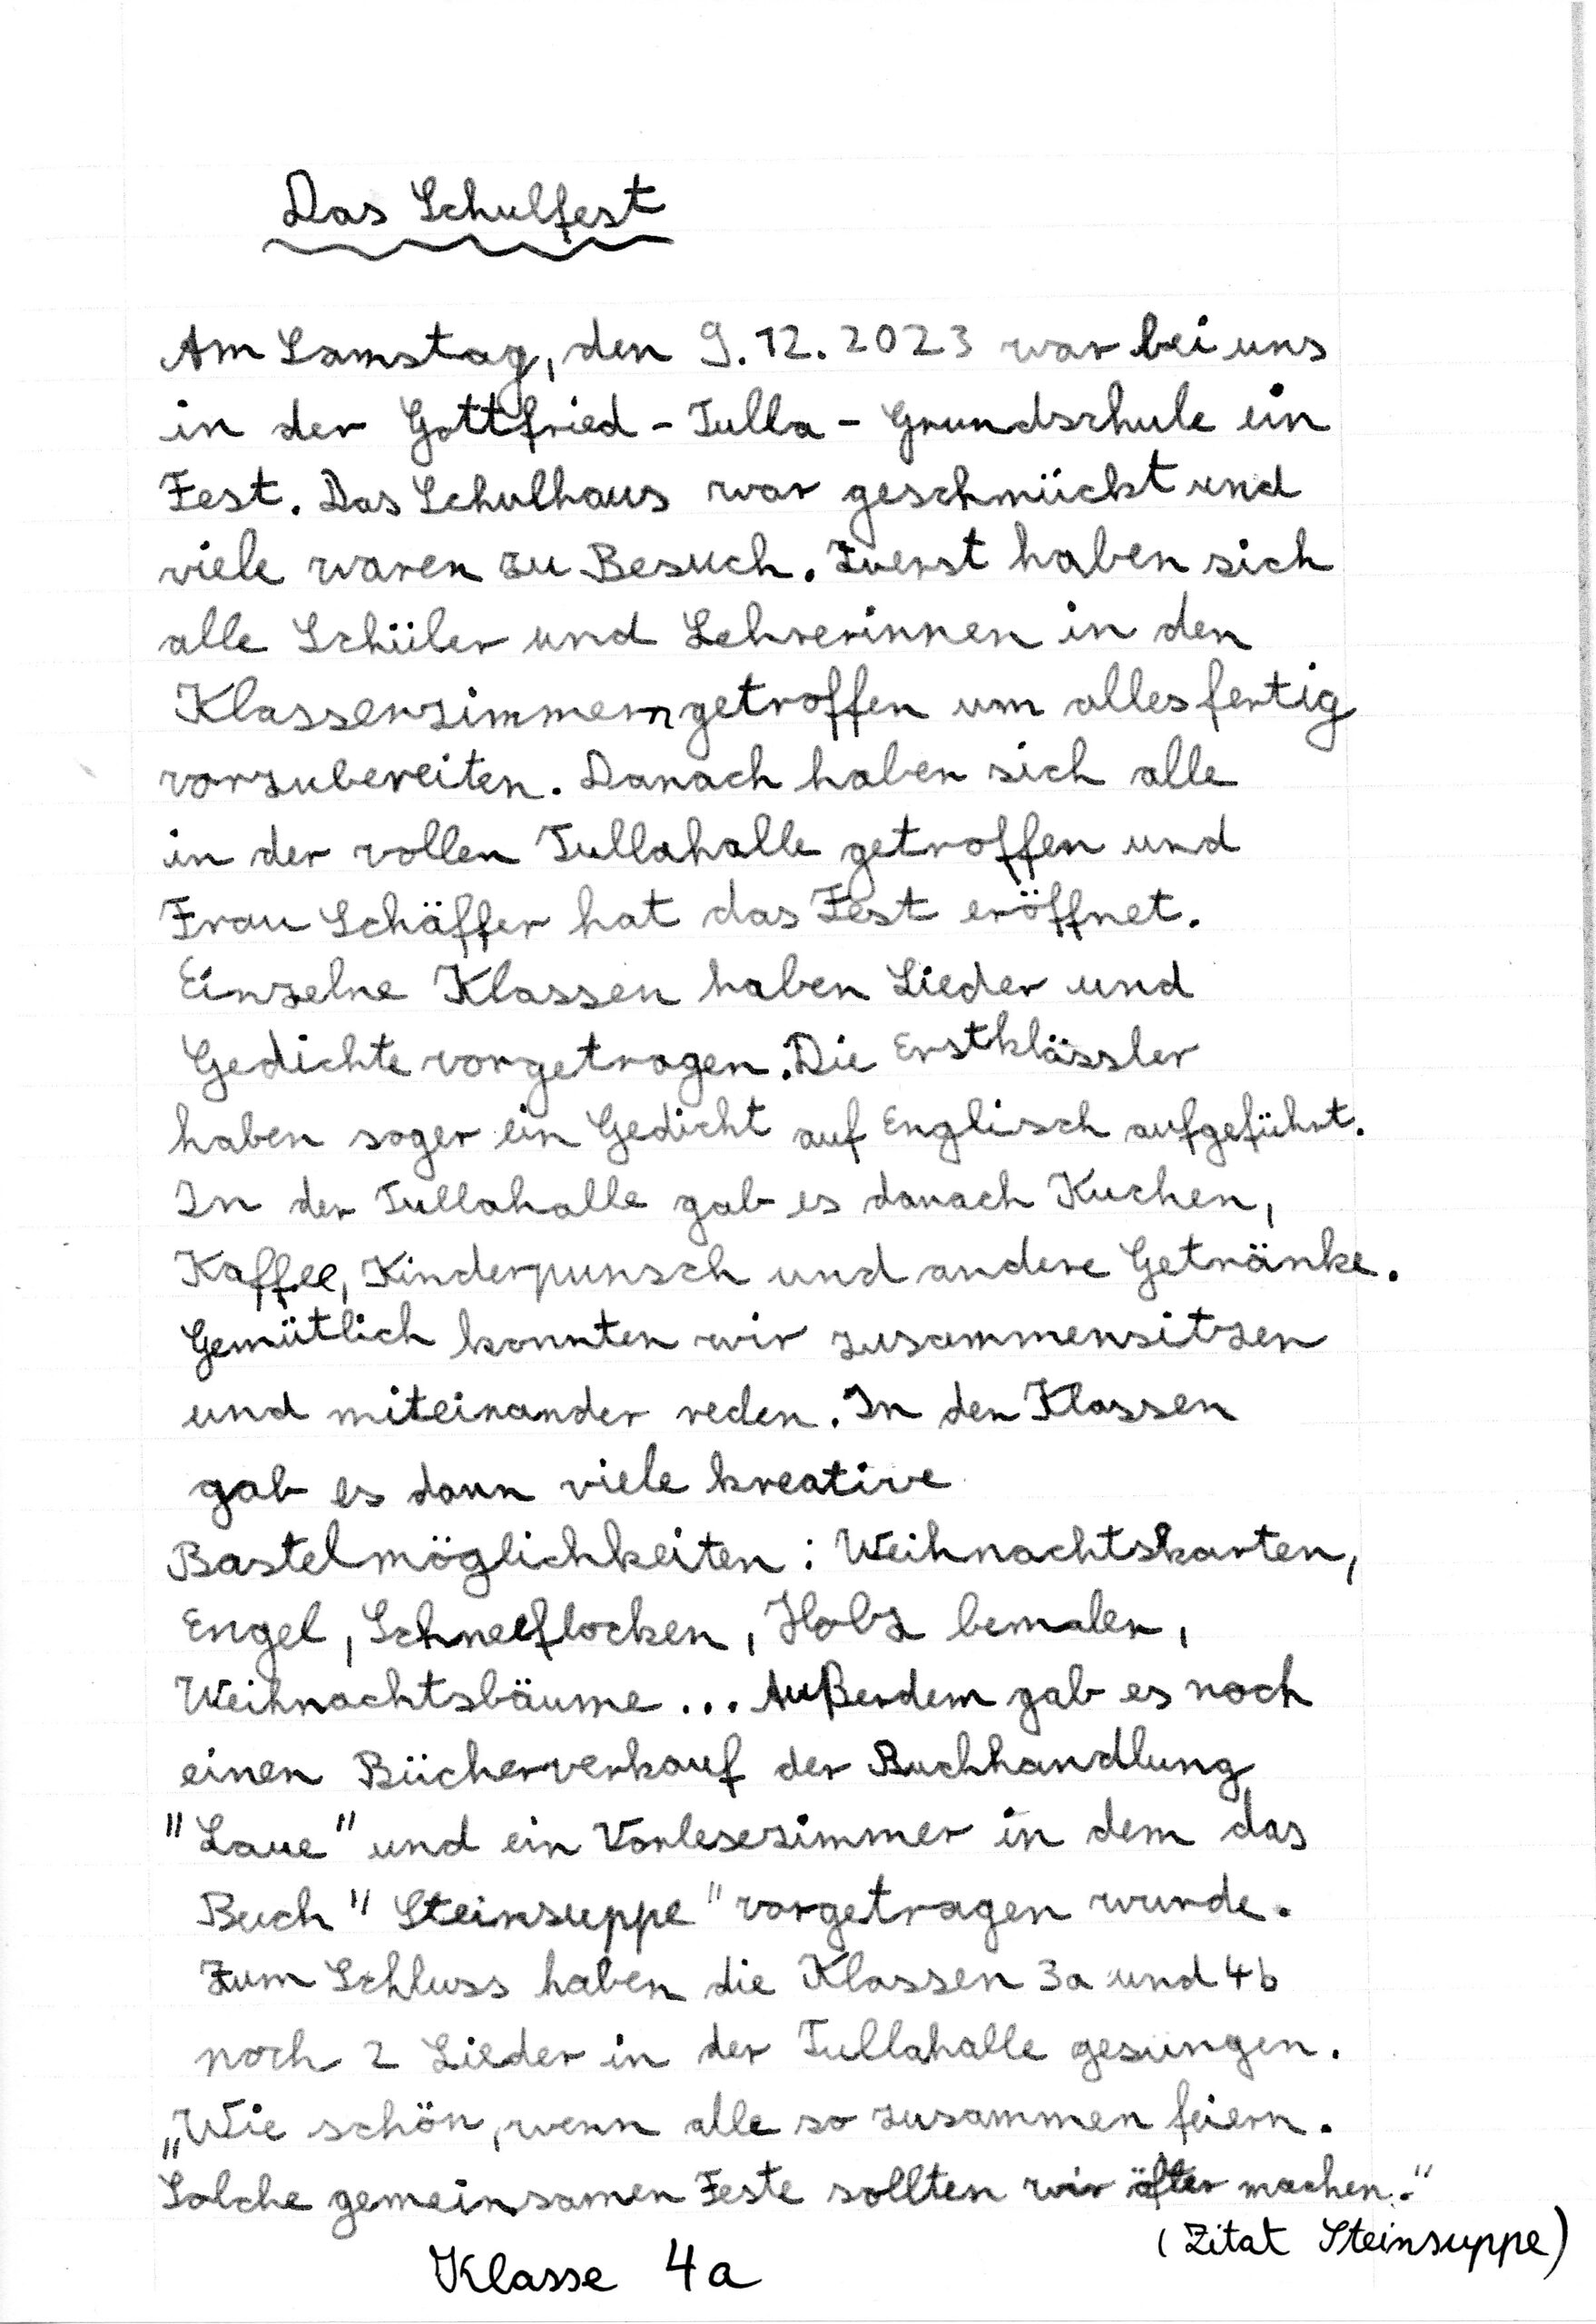 Das Schulfest
Am Samstag, den 9.12.2023 war bei uns
in der Gottfried-Tulla-Grundschule ein
Fest. Das Schulhaus war geschmückt und
viele waren zu Besuch. Zuerst haben sich
alle Schüler und Lehrerinnen in den
Klassenzimmern getroffen um alles fertig
vorzubereiten. Danach haben sich alle
in der vollen Tullahalle getroffen und
Frau Schäffer hat das Fest eröffnet.
Einzelne Klassen haben Lieder und
Gedichte vorgetragen. Die Erstklässler
haben soger ein Gedicht auf Englisch aufgeführt.
In der Tullahalle gab es danach Kuchen,
Kaffee, Kinderpunsch und andere Getränke.
Gemütlich konnten wir zusammensitzen
und miteinander reden. In den Klassen
gab es dann viele kreative
Bastelmöglichkeiten: Weihnachtskarten,
Engel, Schneeflocken, Holz bemalen,
Weihnachtsbäume... Außerdem gab es noch
einen Bücherverkauf der Buchhandlung
"Laue" und ein Vorlesezimmer in dem das
Buch "Steinsuppe" vorgetragen wurde.
Zum Schluss haben die Klassen 3a und 4b
noch 2 Lieder in der Tullahalle gesungen.
„Wie schön, wenn alle so zusammen feiern.
Solche gemeinsamen Feste sollten wir öfter machen."
(Zitat Steinsuppe)
Klasse 4a